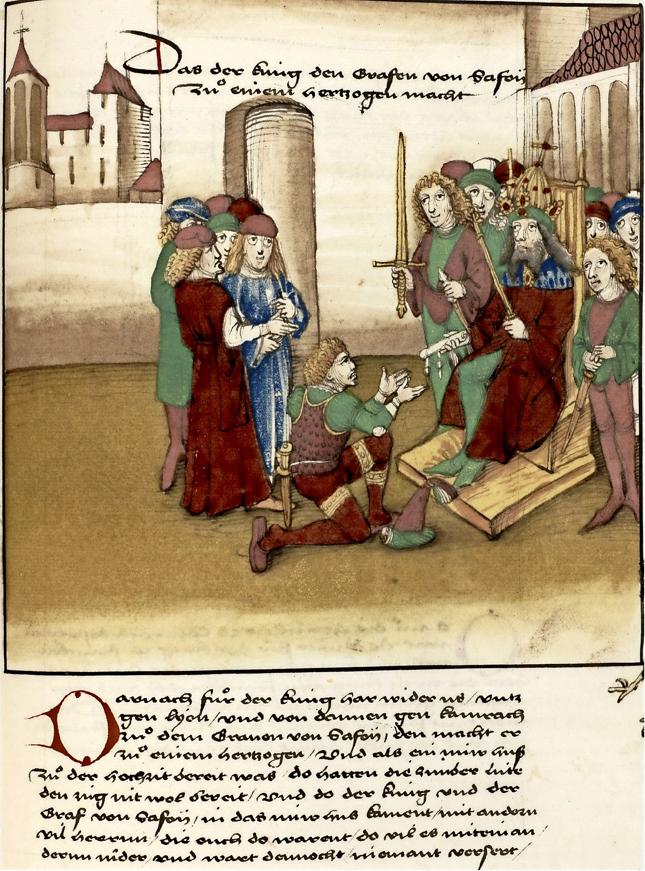 Das der kung den Grafen von Safoÿ
zuͦ einem hertzogen macht
Darnach fuͦr der kung har wider us / untz
gen lyon / und von dannen gen kamrach
zuͦ dem Graven von Safoÿ / den macht er
zuͦ einem hertzogen / Und als ein nuw huß
zuͦ der hochzit bereit was / do hatten die zimber lute
den nit wol bereit / Und do der kung und der
Graf von Safoÿ / in das nuw hus kament / mit andern
vil herrnn / die ouch do warent / do vil es mitein an
dernn nider / und wart dennocht / niemant versert /